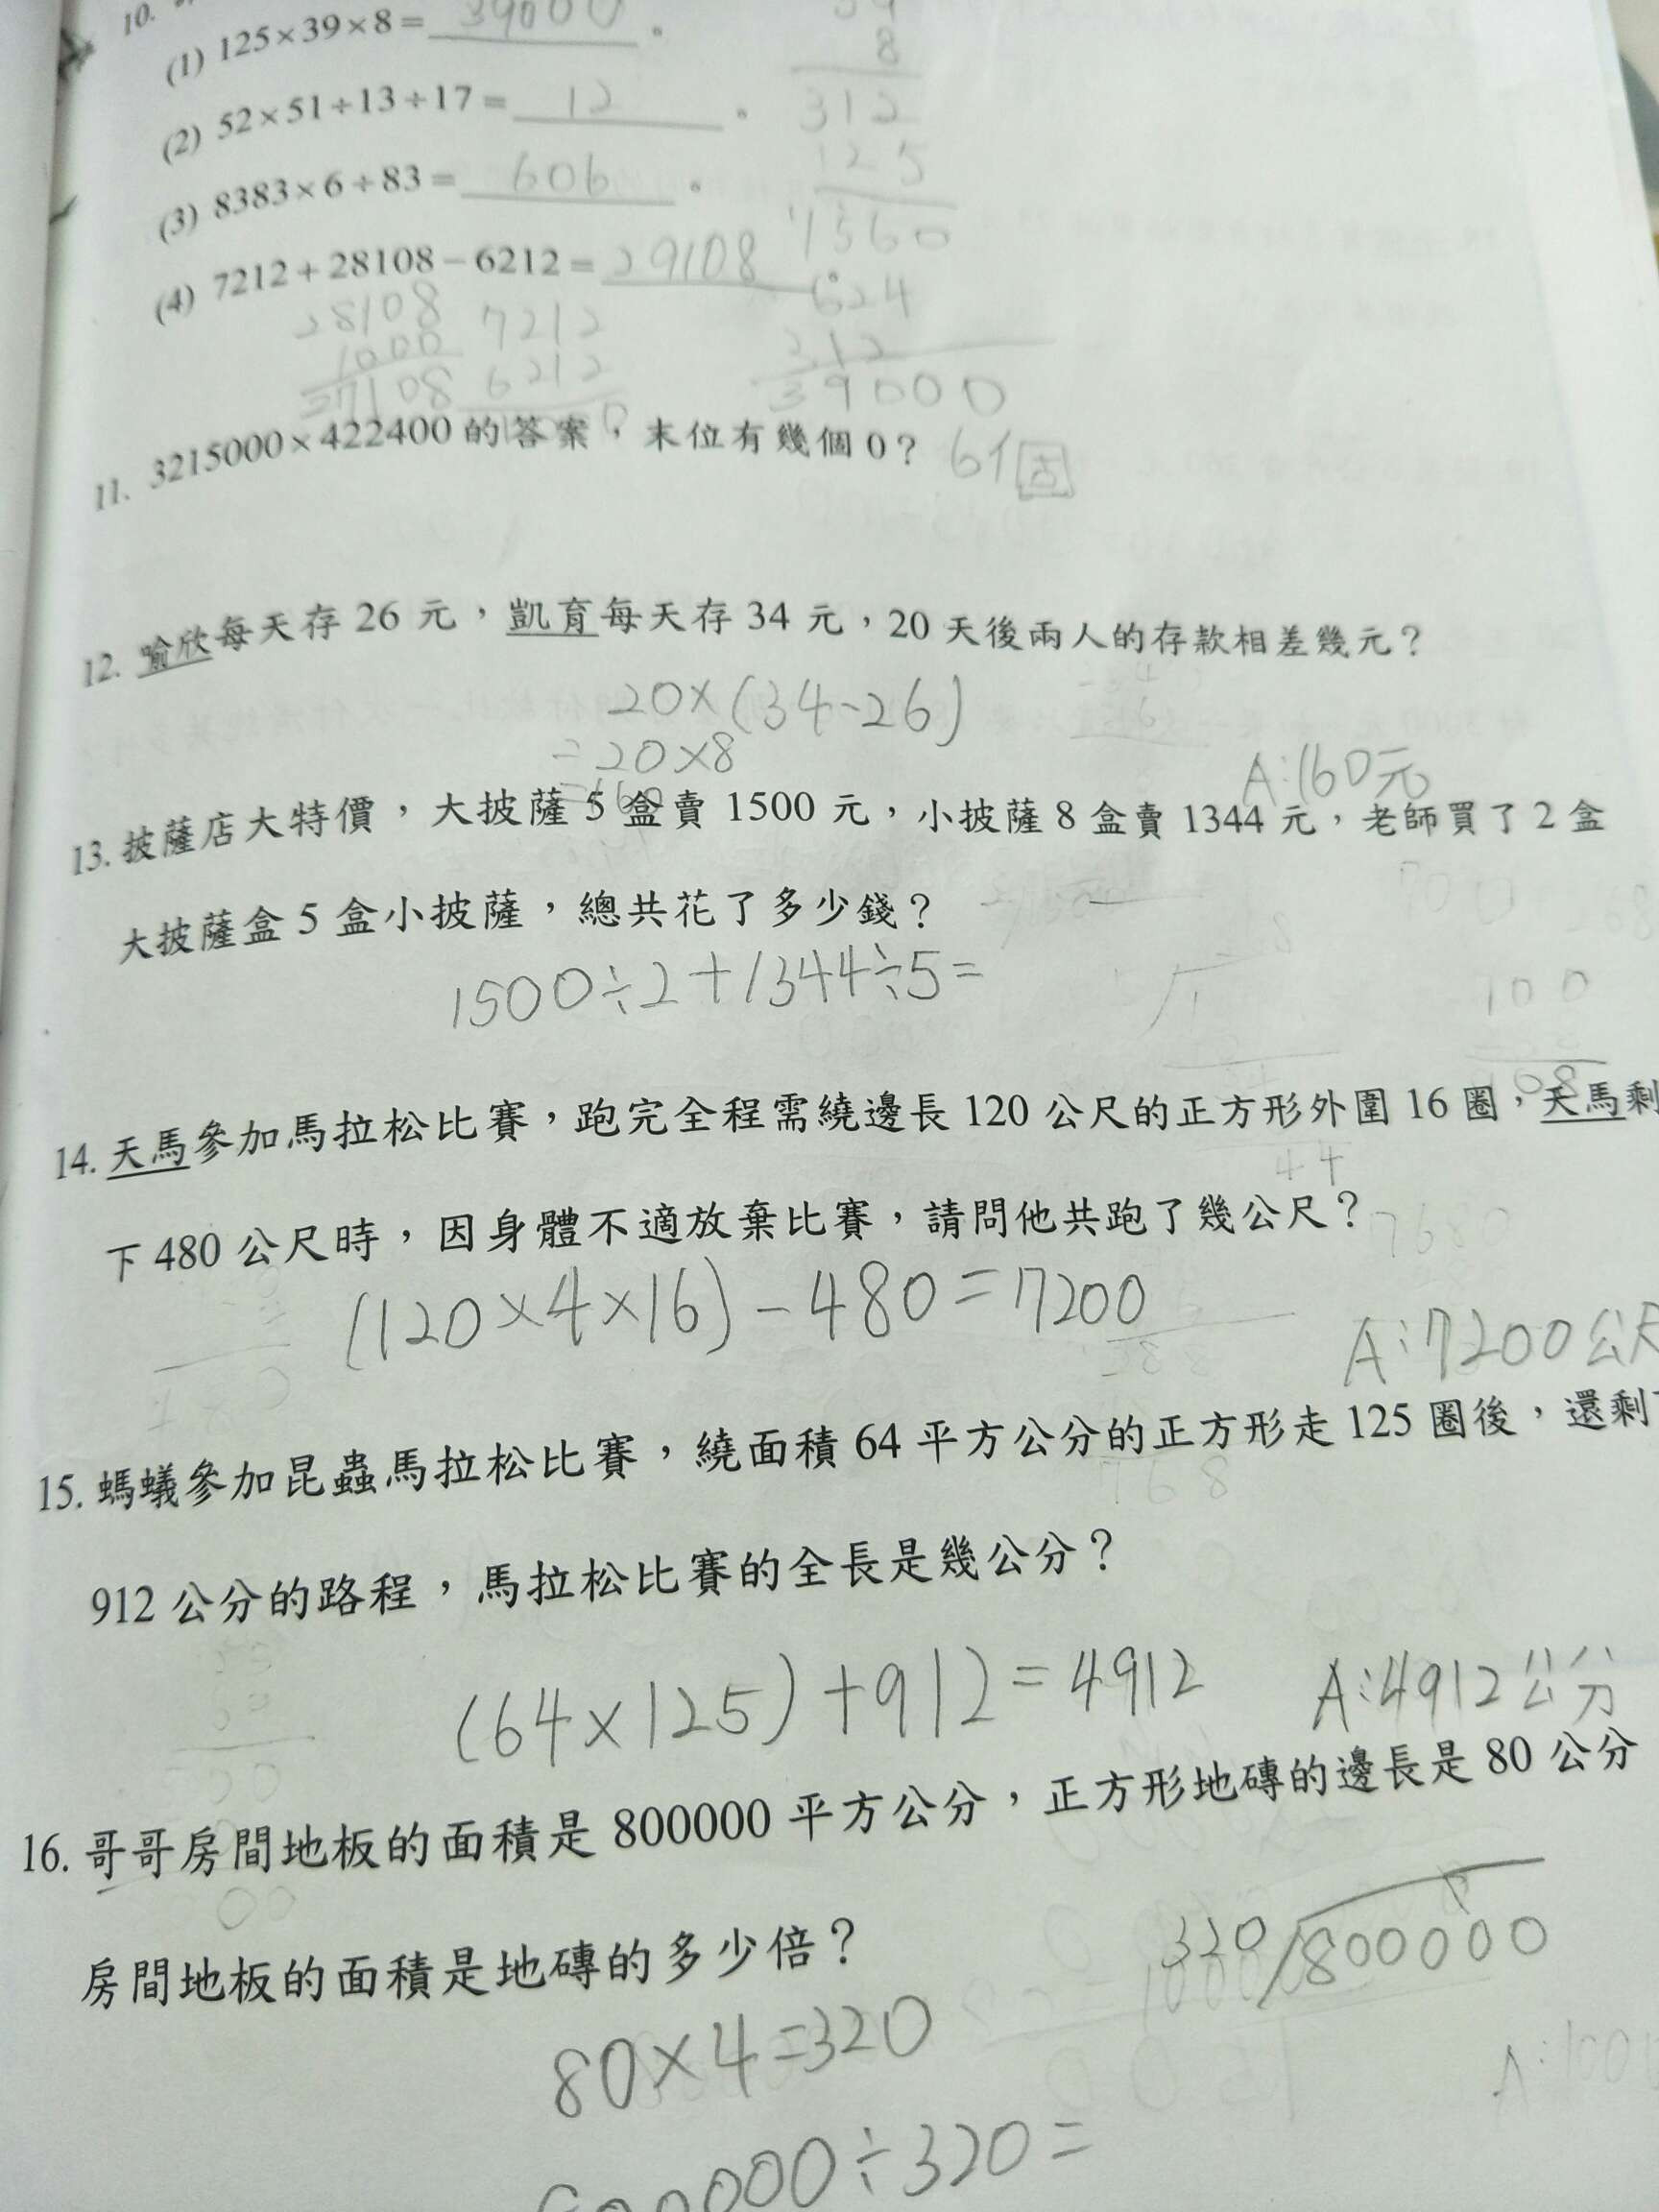 10.
(1) 125×39×8= 39000 。
8
(2) 52×51÷13÷17= 12 。
312
125
(3) 8383×6÷83= 606 。
1560
(4) 7212+28108-6212= 29108
624
28108 7212
1000 6212
312
39000
11. 3215000×422400的答案，末位有幾個0？ 6個
12. 喻欣每天存 26 元，凱育每天存 34 元，20 天後兩人的存款相差幾元？
20×(34-26)
=20×8
=160
A:160元
13. 披薩店大特價，大披薩 5 盒賣 1500 元，小披薩 8 盒賣 1344 元，老師買了 2 盒
大披薩盒 5 盒小披薩，總共花了多少錢？
1500÷2+1344÷5=
14. 天馬參加馬拉松比賽，跑完全程需繞邊長 120 公尺的正方形外圍 16 圈，天馬剩
下 480 公尺時，因身體不適放棄比賽，請問他共跑了幾公尺？
7680
(120×4×16)-480=7200
A:7200公尺
15. 螞蟻參加昆蟲馬拉松比賽，繞面積 64 平方公分的正方形走 125 圈後，還剩
768
912 公分的路程，馬拉松比賽的全長是幾公分？
(64×125)+912=4912
A:4912公分
16. 哥哥房間地板的面積是 800000 平方公分，正方形地磚的邊長是 80 公分
房間地板的面積是地磚的多少倍？
320 800000
80×4=320
800000÷320=